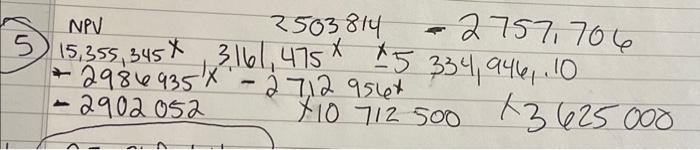 NPV 2503814 - 2757,706
5 15,355,345x 3161,475x x5 334,946,.10
- 2986935x - 2712956x
- 2902052 x10 712 500 x3625000